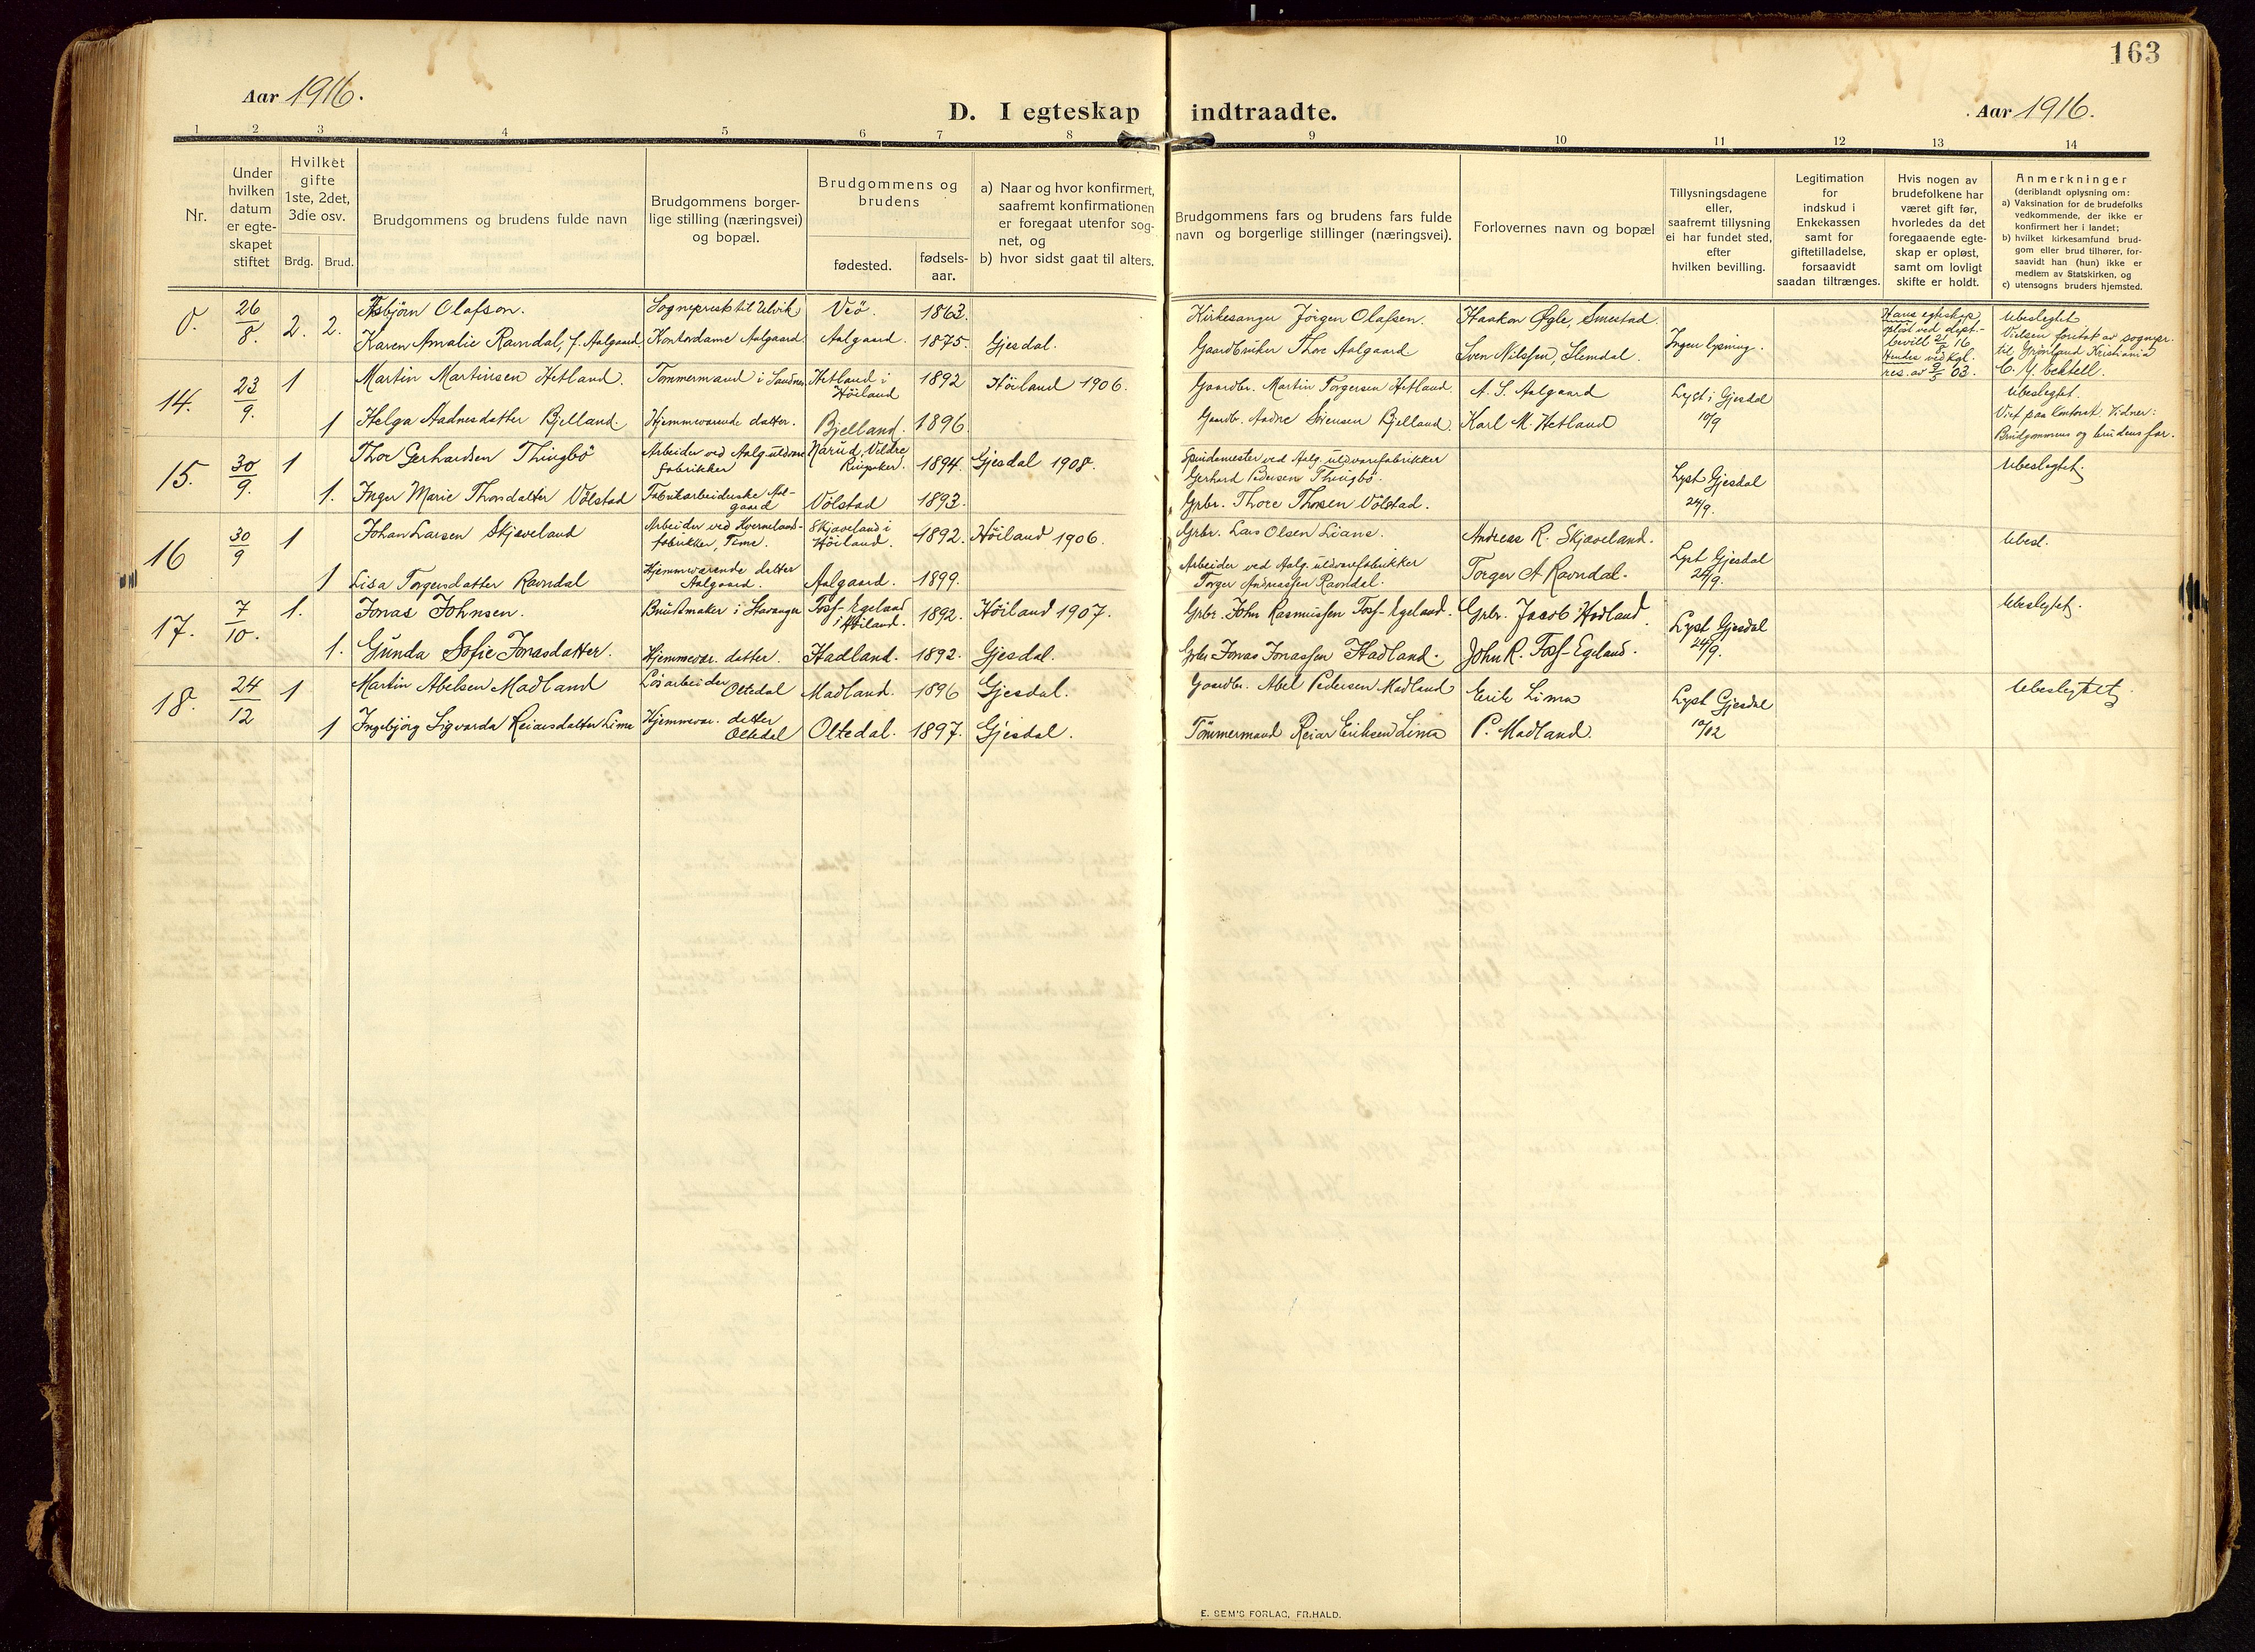 163
Aar 1916.
D. I egteskap indtraadte.
Aar 1916.
1 2 3 4 5 6 7 8 9 10 11 12 13 14
Nr.
Under hvilken datum er egte- skapet stiftet
Hvilket gifte 1ste, 2det, 3die osv.
Brdg. Brud.
Brudgommens og brudens fulde navn
Brudgommens borger- lige stilling (næringsvei) og bopæl.
Brudgommens og brudens
fødested.
fødsels- aar.
a) Naar og hvor konfirmert, saafremt konfirmationen er foregaat utenfor sog- net, og
b) hvor sidst gaat til alters.
Brudgommens fars og brudens fars fulde navn og borgerlige stillinger (næringsvei).
Forlovernes navn og bopæl
Tillysningsdagene eller, saafremt tillysning ei har fundet sted, efter hvilken bevilling.
Legitimation for indskud i Enkekassen samt for giftetilladelse, forsaavidt saadan tiltrænges.
Hvis nogen av brudefolkene har været gift før, hvorledes da det foregaaende egte- skap er opløst, samt om lovligt skifte er holdt.
Anmerkninger
(deriblandt oplysning om:
a) Vaksination for de brudefolks vedkommende, der ikke er konfirmert her i landet;
b) hvilket kirkesamfund brud- gom eller brud tilhører, for- saavidt han (hun) ikke er medlem av Statskirken, og
c) utensogns bruders hjemsted.
0. 26/8. 2. 2. Asbjörn Olafson. Sogneprest til Ulvik Veö. 1863. Kirkesanger Jörgen Olafsen. Haakon Øgle, Smestad. Ingen lysning. Hans egteskap opløst ved dept- bevill 2/8 16 Hendes ved kgl. res. av 9/5 03. Ubeslegtet
Karen Amalie Ravndal, f. Aalgaard. Kontordame Aalgaard. Aalgaard. 1875. Gjesdal. Gaardbruker Thore Aalgaard Sven Nilssen, Slemdal. Vielsen foretat av sognepr. til Grønland Kristiania
14. 23/9. 1 Martin Martinsen Hetland. Tömmermand i Sandnes Hetland i Höiland 1892 Höiland 1906. Gaardbr. Martin Torgersen Hetland. A. S. Aalgaard Lyst i Gjesdal 10/9 Ubeslegtet.
1 Helga Aadnesdatter Bjelland. Hjemmeværende datter. Bjelland. 1896. Gaardb. Aadne Sörensen Bjelland. Karl M. Hetland Viet paa kontoret. Vidner: Brudgommens og brudens far.
15. 30/9. 1 Thor Gerhardsen Thingbö Arbeider ved Aalg. uldvare fabrikker 1894. Gjesdal 1908. Spindemester ved Aalg. uldvarefabrikker Gerhard Pedersen Thingbö. Lyst Gjesdal 24/9. Ubeslegtet.
1. Inger Marie Thorsdatter Völstad Fabrikarbeiderske Aal- gaard Völstad 1893. Grbr. Thore Thorsen Völstad.
16 30/9 1 Johan Larsen Skjæveland Arbeider ved Kvernelands- fabrikker, Time. Skjæveland i Höiland. 1892. Höiland 1906. Grbr. Lars Olsen Liane. Andreas R. Skjæveland. Lyst Gjesdal 24/9. Ubesl.
1 Lisa Torgersdatter Ravndal Hjemmeværende datter Aalgaard. Aalgaard. 1899. Arbeider ved Aalg. uldvarefabrikker Torger Andreassen Ravndal. Torger A Ravndal.
17. 7/10. 1. Jonas Johnsen. Buntmaker i Stavanger Foss-Egeland i Höiland. 1892. Höiland 1907. Grbr. John Rasmussen Foss-Egeland. Grbr. Jacob Hadland. Lyst Gjesdal 24/9. Ubeslegtet.
1. Gunda Sofie Jonasdatter. Hjemmevær. datter. Hadland. 1892. Gjesdal. Grbr Jonas Jonassen Hadland. John R. Foss-Egeland.
18. 24/12 1 Martin Abelsen Madland Løsarbeider Oltedal Madland. 1896 Gjesdal. Gaardbr. Abel Pedersen Madland Eirik Lima Lyst Gjesdal 10/12 Ubeslegtet
1 Ingebjörg Sigvarda Reiarsdatter Lima Hjemmevær. datter Oltedal Oltedal. 1897. Gjesdal. Tömmermand Reiar Eriksen Lima P. Madland.
E. SEM'S FORLAG, FR.HALD.